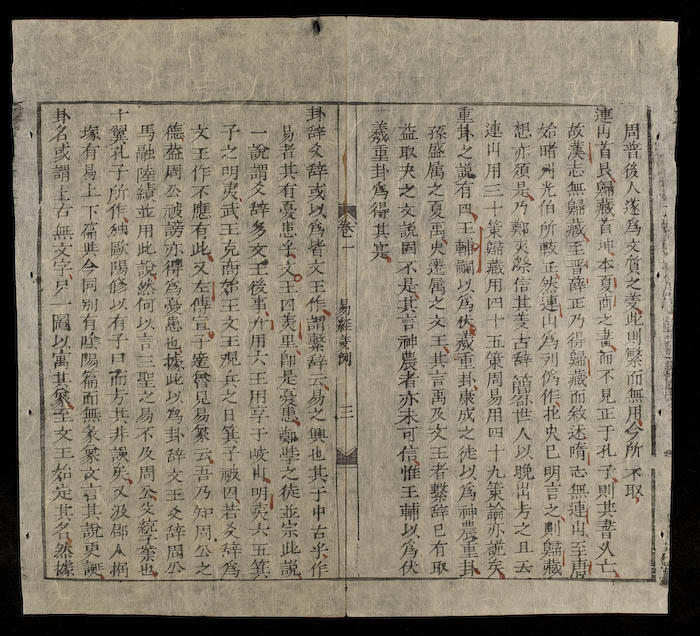 周普後人遂為文質之義此則繁而無用今所不取
連山首艮歸藏首坤本夏商之書而不見正于孔子則其書久亡
故漢志無歸藏至晉薛正乃得歸藏而敘述隋志無連山至唐
始睹劉光伯所載正然連山為列偽作北史已明言之則歸藏
想亦須是乃鄭夾漈信其羲古辭簡舒世人以晚出与之且云
連山用三十策歸藏用四十五策周易用四十九策論亦詭矣
重卦之說有四王輔嗣以為伏羲重卦康成之徒以為神農重卦
孫盛属之夏禹史遷属之文王其言禹及文王者繫辭已有取
益取夬之文說固不是其言神農者亦未可信惟王輔以為伏
羲重卦為得其寔
卷一
易經義例
三
卦辭爻辭或以為皆文王作謂繫辭云易之興也其于中古乎作
易者其有憂患乎文王囚羑里即是憂患鄭學之徒並宗此說
一說謂爻辭多文王後事升用六王用亨于岐山明夷六五箕
子之明夷武王克商始王文王观兵之日箕子被囚若爻辭為
文王作不應有此又左傳宣子適魯見易象云吾乃知周公之
德葢周公被謗亦得為憂患也據此以為卦辭文王爻辭周公
馬融陸績並用此說然何以言三聖之易不及周公文統子業也
十翼孔子所作純歐陽修以有子曰而与其非誤矣又汲郡人掘
塚有易上下篇與今同别有陰陽篇而無彖象文言其說更誕
卦名或謂上古無文字只一圖以寓其象至文王始定其名然據